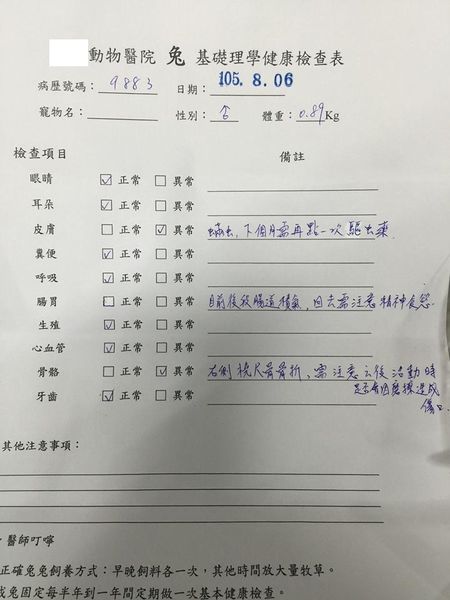 動物醫院 兔 基礎理學健康檢查表
病歷號碼： 9883 日期： 105. 8. 06
寵物名： 性別： ♂ 體重： 0.89 Kg
檢查項目 備註
眼睛 ☑ 正常 ☐ 異常
耳朵 ☑ 正常 ☐ 異常
皮膚 ☐ 正常 ☑ 異常 蟎虫，下個月需再點一次驅虫藥
糞便 ☑ 正常 ☐ 異常
呼吸 ☑ 正常 ☐ 異常
腸胃 ☐ 正常 ☐ 異常 目前後段腸道積氣，回去需注意精神食慾
生殖 ☑ 正常 ☐ 異常
心血管 ☑ 正常 ☐ 異常
骨骼 ☐ 正常 ☑ 異常 右側橈尺骨骨折，需注意云後活動時
是否會因磨擦造成
牙齒 ☑ 正常 ☐ 異常
傷口
其他注意事項：
醫師叮嚀
正確兔兔飼養方式：早晚飼料各一次，其他時間放大量牧草。
兔固定每半年到一年間定期做一次基本健康檢查。